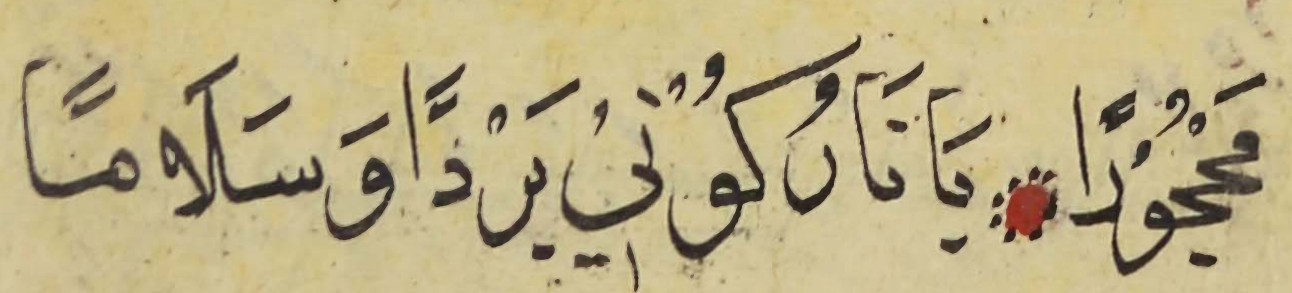 مَحْجُوْرًا يَا نَارُ كُوْنِيْ بَرْدًا وَ سَلَامًا